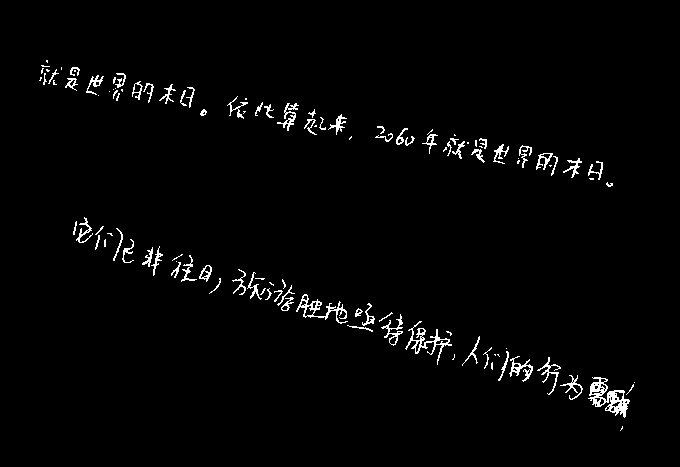 就是世界的末日。依此算起来，2060年就是世界的末日。
它们已非往日，旅游胜地亟待保护，人们的行为需